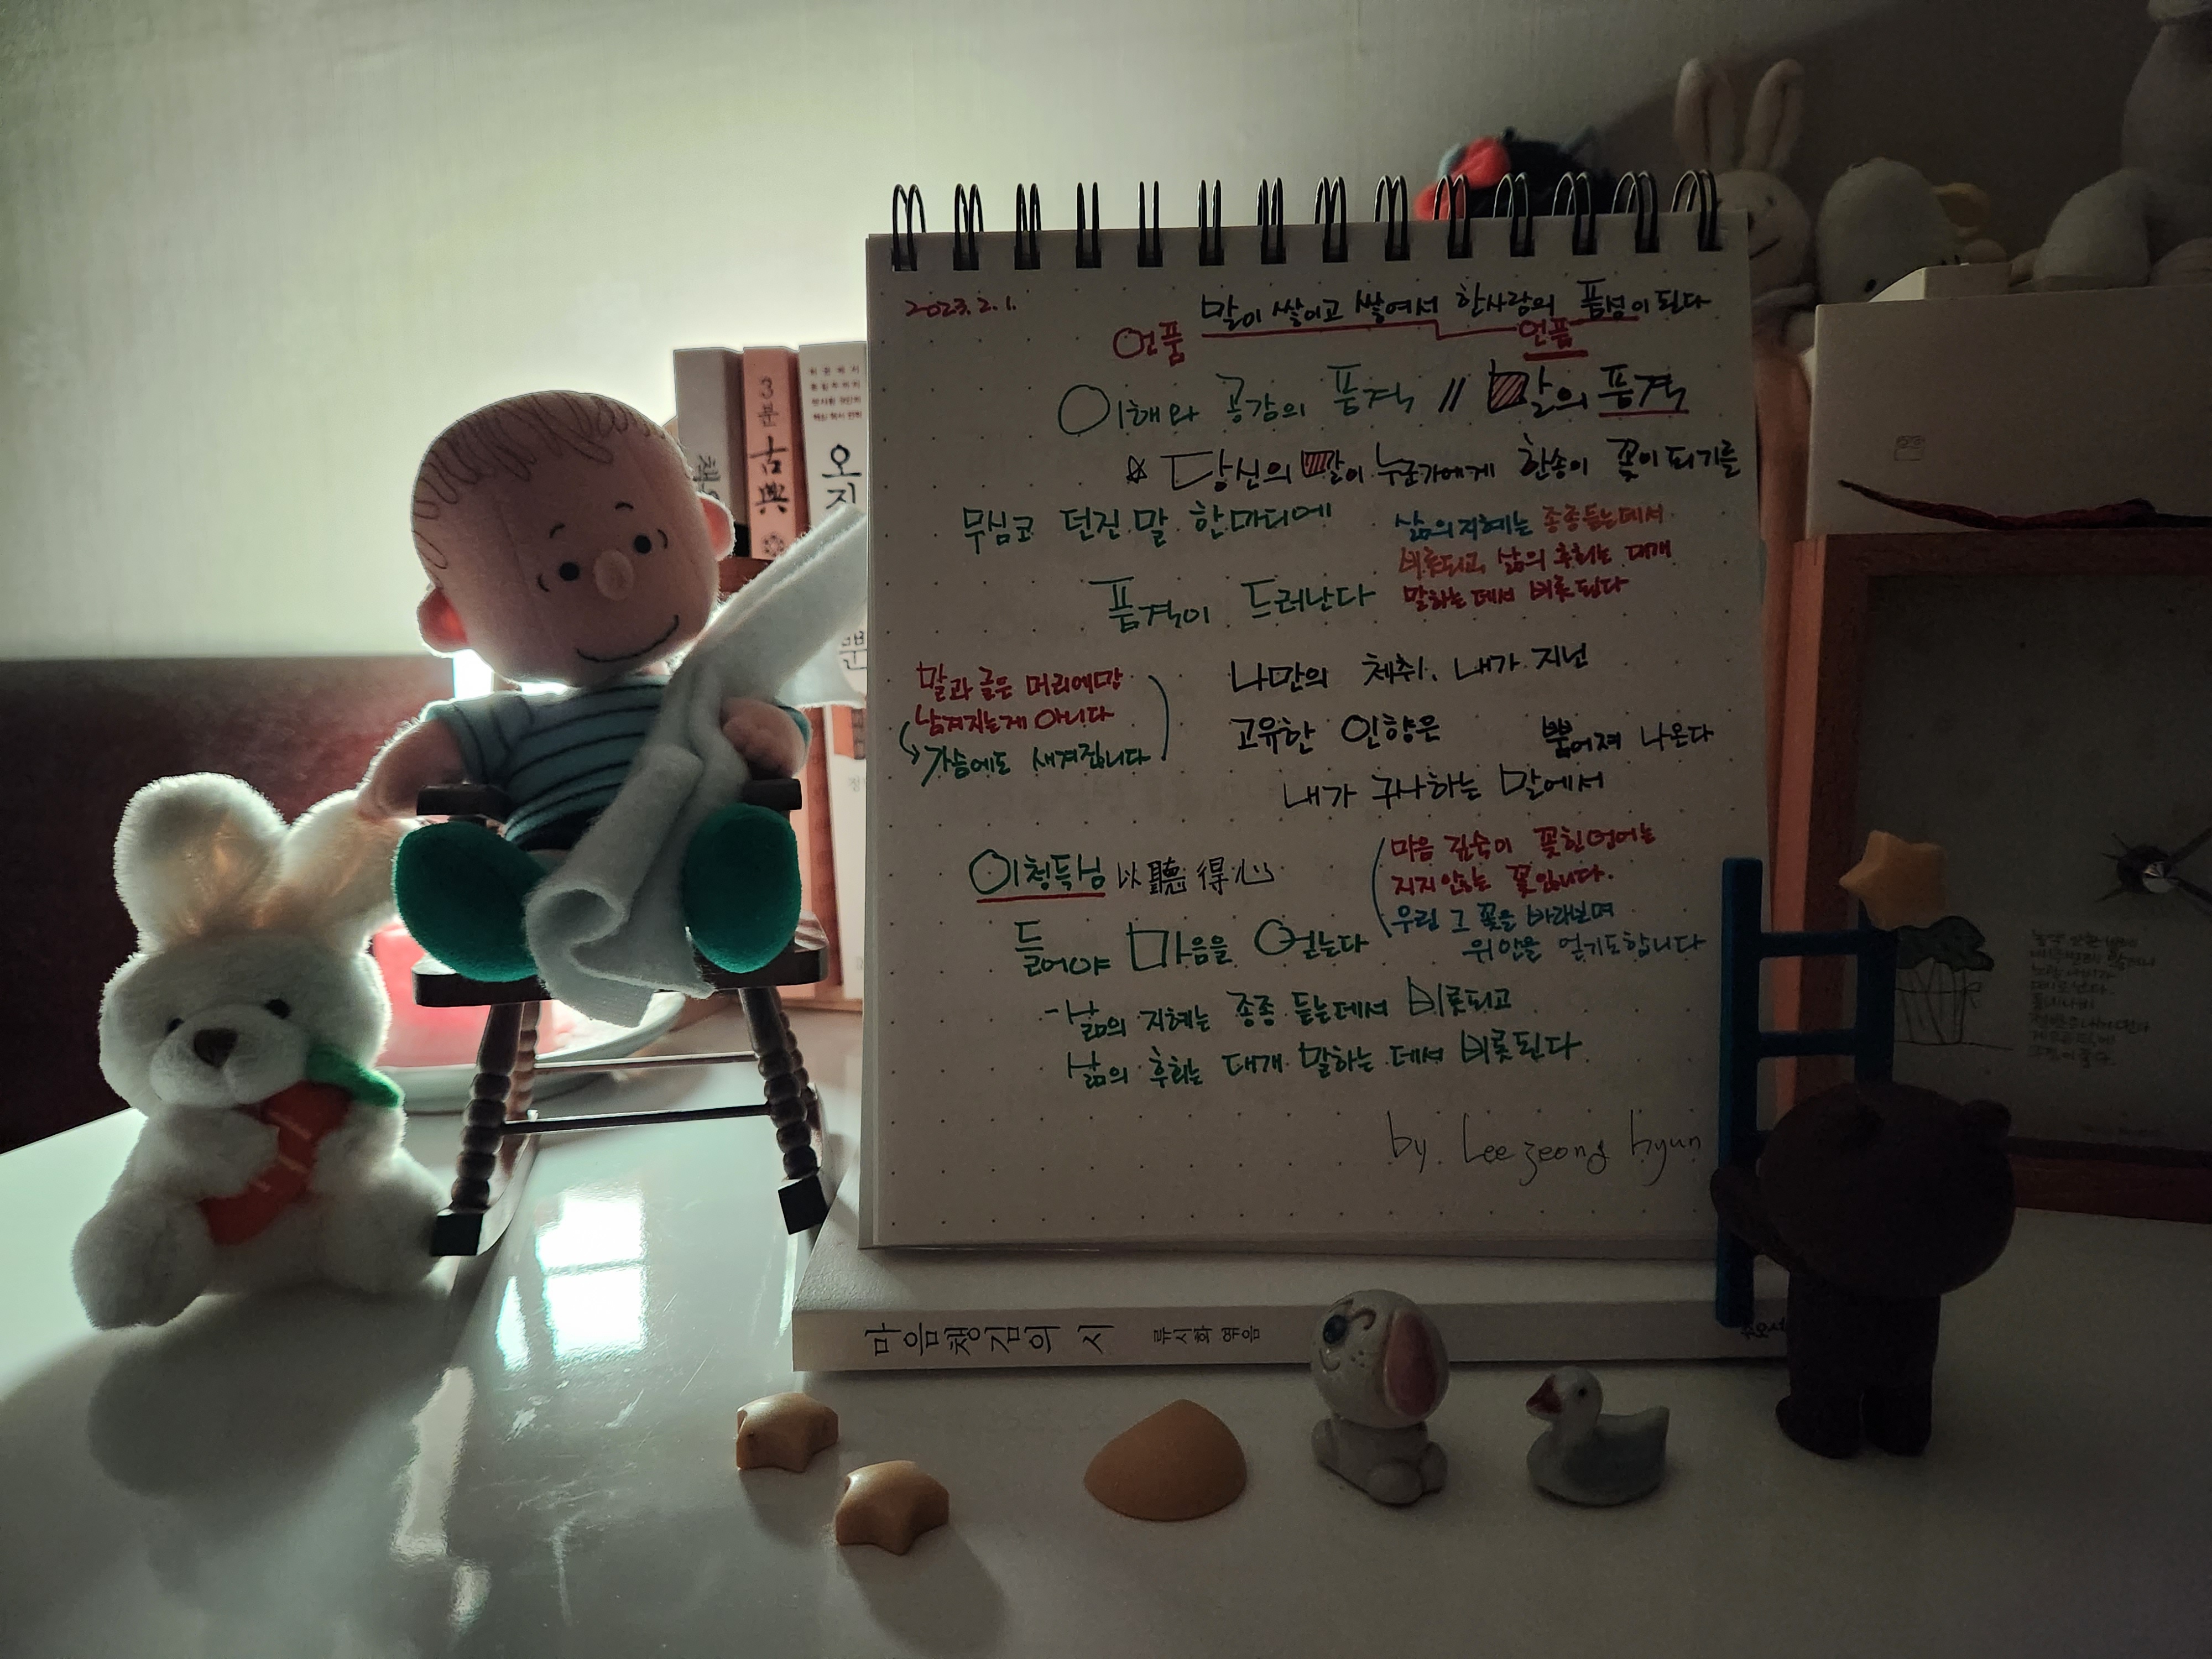 2023.2.1.
말이 쌓이고 쌓여서 한사람의 품성이 된다
언품
언품
이해와 공감의 품격 // 말의 품격
☆ 당신의 말이 누군가에게 한송이 꽃이 되기를
무심코 던진 말 한마디에
품격이 드러난다
삶의 지혜는 종종 듣는데서
비롯되고, 삶의 후회는 대개
말하는 데서 비롯된다
말과 글은 머리에만
남겨지는게 아니다
가슴에도 새겨집니다
나만의 체취, 내가 지닌
고유한 인향은
뿜어져 나온다
내가 구사하는 말에서
이청득심 以聽得心
들어야 마음을 얻는다
마음 깊숙이 꽂힌 언어는
지지 않는 꽃입니다.
우린 그 꽃을 바라보며
위안을 얻기도합니다
- 삶의 지혜는 종종 듣는데서 비롯되고
삶의 후회는 대개 말하는 데서 비롯된다
by. Lee zeong hyun
마음챙김의 시 류시화 엮음
3분 古典
오